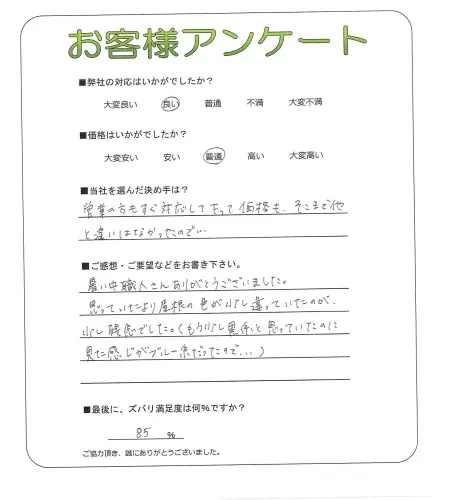 お客様アンケート
■弊社の対応はいかがでしたか?
大変良い 良い 普通 不満 大変不満
■価格はいかがでしたか?
大変安い 安い 普通 高い 大変高い
■当社を選んだ決め手は?
営業の方もすぐ対応して下さって価格も、そこまで他
と違いはなかったので…
■ご感想・ご要望などをお書き下さい。
暑い中職人さんありがとうございました。
思っていたより屋根の色が少し違っていたのが、
少し残念でした。(もう少し黒系と思っていたのに
見た感じがブルー系だったので…)
■最後に、ズバリ満足度は何%ですか?
85 %
ご協力頂き、誠にありがとうございました。